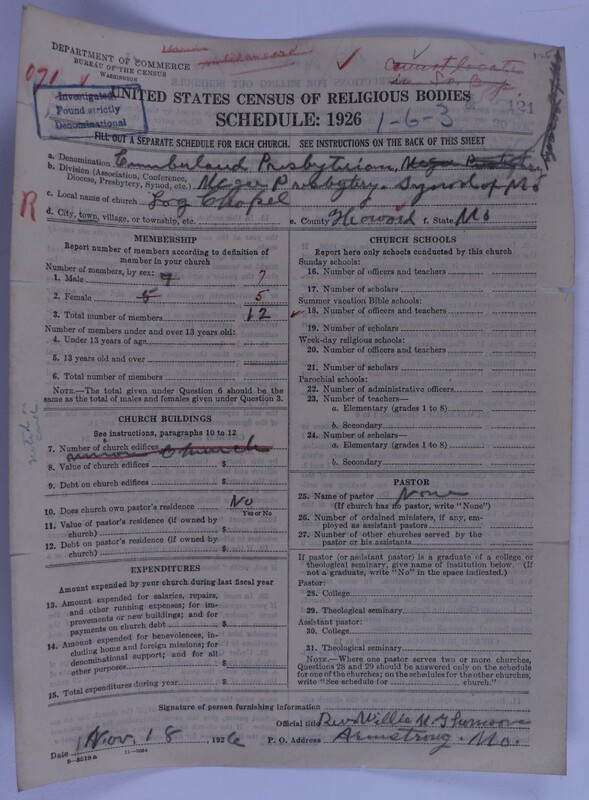 DEPARTMENT OF COMMERCE
BUREAU OF THE CENSUS
WASHINGTON
071
Investigated
Found strictly
Denominational
UNITED STATES CENSUS OF RELIGIOUS BODIES
SCHEDULE: 1926
1-6-3
121
FILL OUT A SEPARATE SCHEDULE FOR EACH CHURCH. SEE INSTRUCTIONS ON THE BACK OF THIS SHEET
a. Denomination Cumberland Presbyterian,
b. Division (Association, Conference, Diocese, Presbytery, Synod, etc.) Presbytery. Synod of Mo
c. Local name of church Log Chapel
R
d. City, town, village, or township, etc. e. County Howard f. State Mo
MEMBERSHIP
Report number of members according to definition of member in your church
Number of members, by sex:
1. Male 7 7
2. Female 5 5
3. Total number of members 12
Number of members under and over 13 years old:
4. Under 13 years of age
5. 13 years old and over
6. Total number of members
NOTE.—The total given under Question 6 should be the same as the total of males and females given under Question 3.
CHURCH BUILDINGS
See instructions, paragraphs 10 to 12
7. Number of church edifices
Church
8. Value of church edifices $
9. Debt on church edifices $
10. Does church own pastor's residence No
Yes or No
11. Value of pastor's residence (if owned by church) $
12. Debt on pastor's residence (if owned by church) $
EXPENDITURES
Amount expended by your church during last fiscal year
13. Amount expended for salaries, repairs, and other running expenses; for improvements or new buildings; and for payments on church debt $
14. Amount expended for benevolences, including home and foreign missions; for denominational support; and for all other purposes $
15. Total expenditures during year $
CHURCH SCHOOLS
Report here only schools conducted by this church
Sunday schools:
16. Number of officers and teachers
17. Number of scholars
Summer vacation Bible schools:
18. Number of officers and teachers
19. Number of scholars
Week-day religious schools:
20. Number of officers and teachers
21. Number of scholars
Parochial schools:
22. Number of administrative officers
23. Number of teachers—
a. Elementary (grades 1 to 8)
b. Secondary
24. Number of scholars—
a. Elementary (grades 1 to 8)
b. Secondary
PASTOR
25. Name of pastor None
(If church has no pastor, write "None")
26. Number of ordained ministers, if any, employed as assistant pastors
27. Number of other churches served by the pastor or his assistants
If pastor (or assistant pastor) is a graduate of a college or theological seminary, give name of institution below. (If not a graduate, write "No" in the space indicated.)
Pastor:
28. College
29. Theological seminary
Assistant pastor:
30. College
31. Theological seminary
NOTE.—Where one pastor serves two or more churches, Questions 28 and 29 should be answered only on the schedule for one of the churches; on the schedules for the other churches, write "See schedule for church."
Signature of person furnishing information
Official title Rev Willie
Date Nov. 18, 1926 P. O. Address Armstrong, Mo.
8-8519a 11-9034